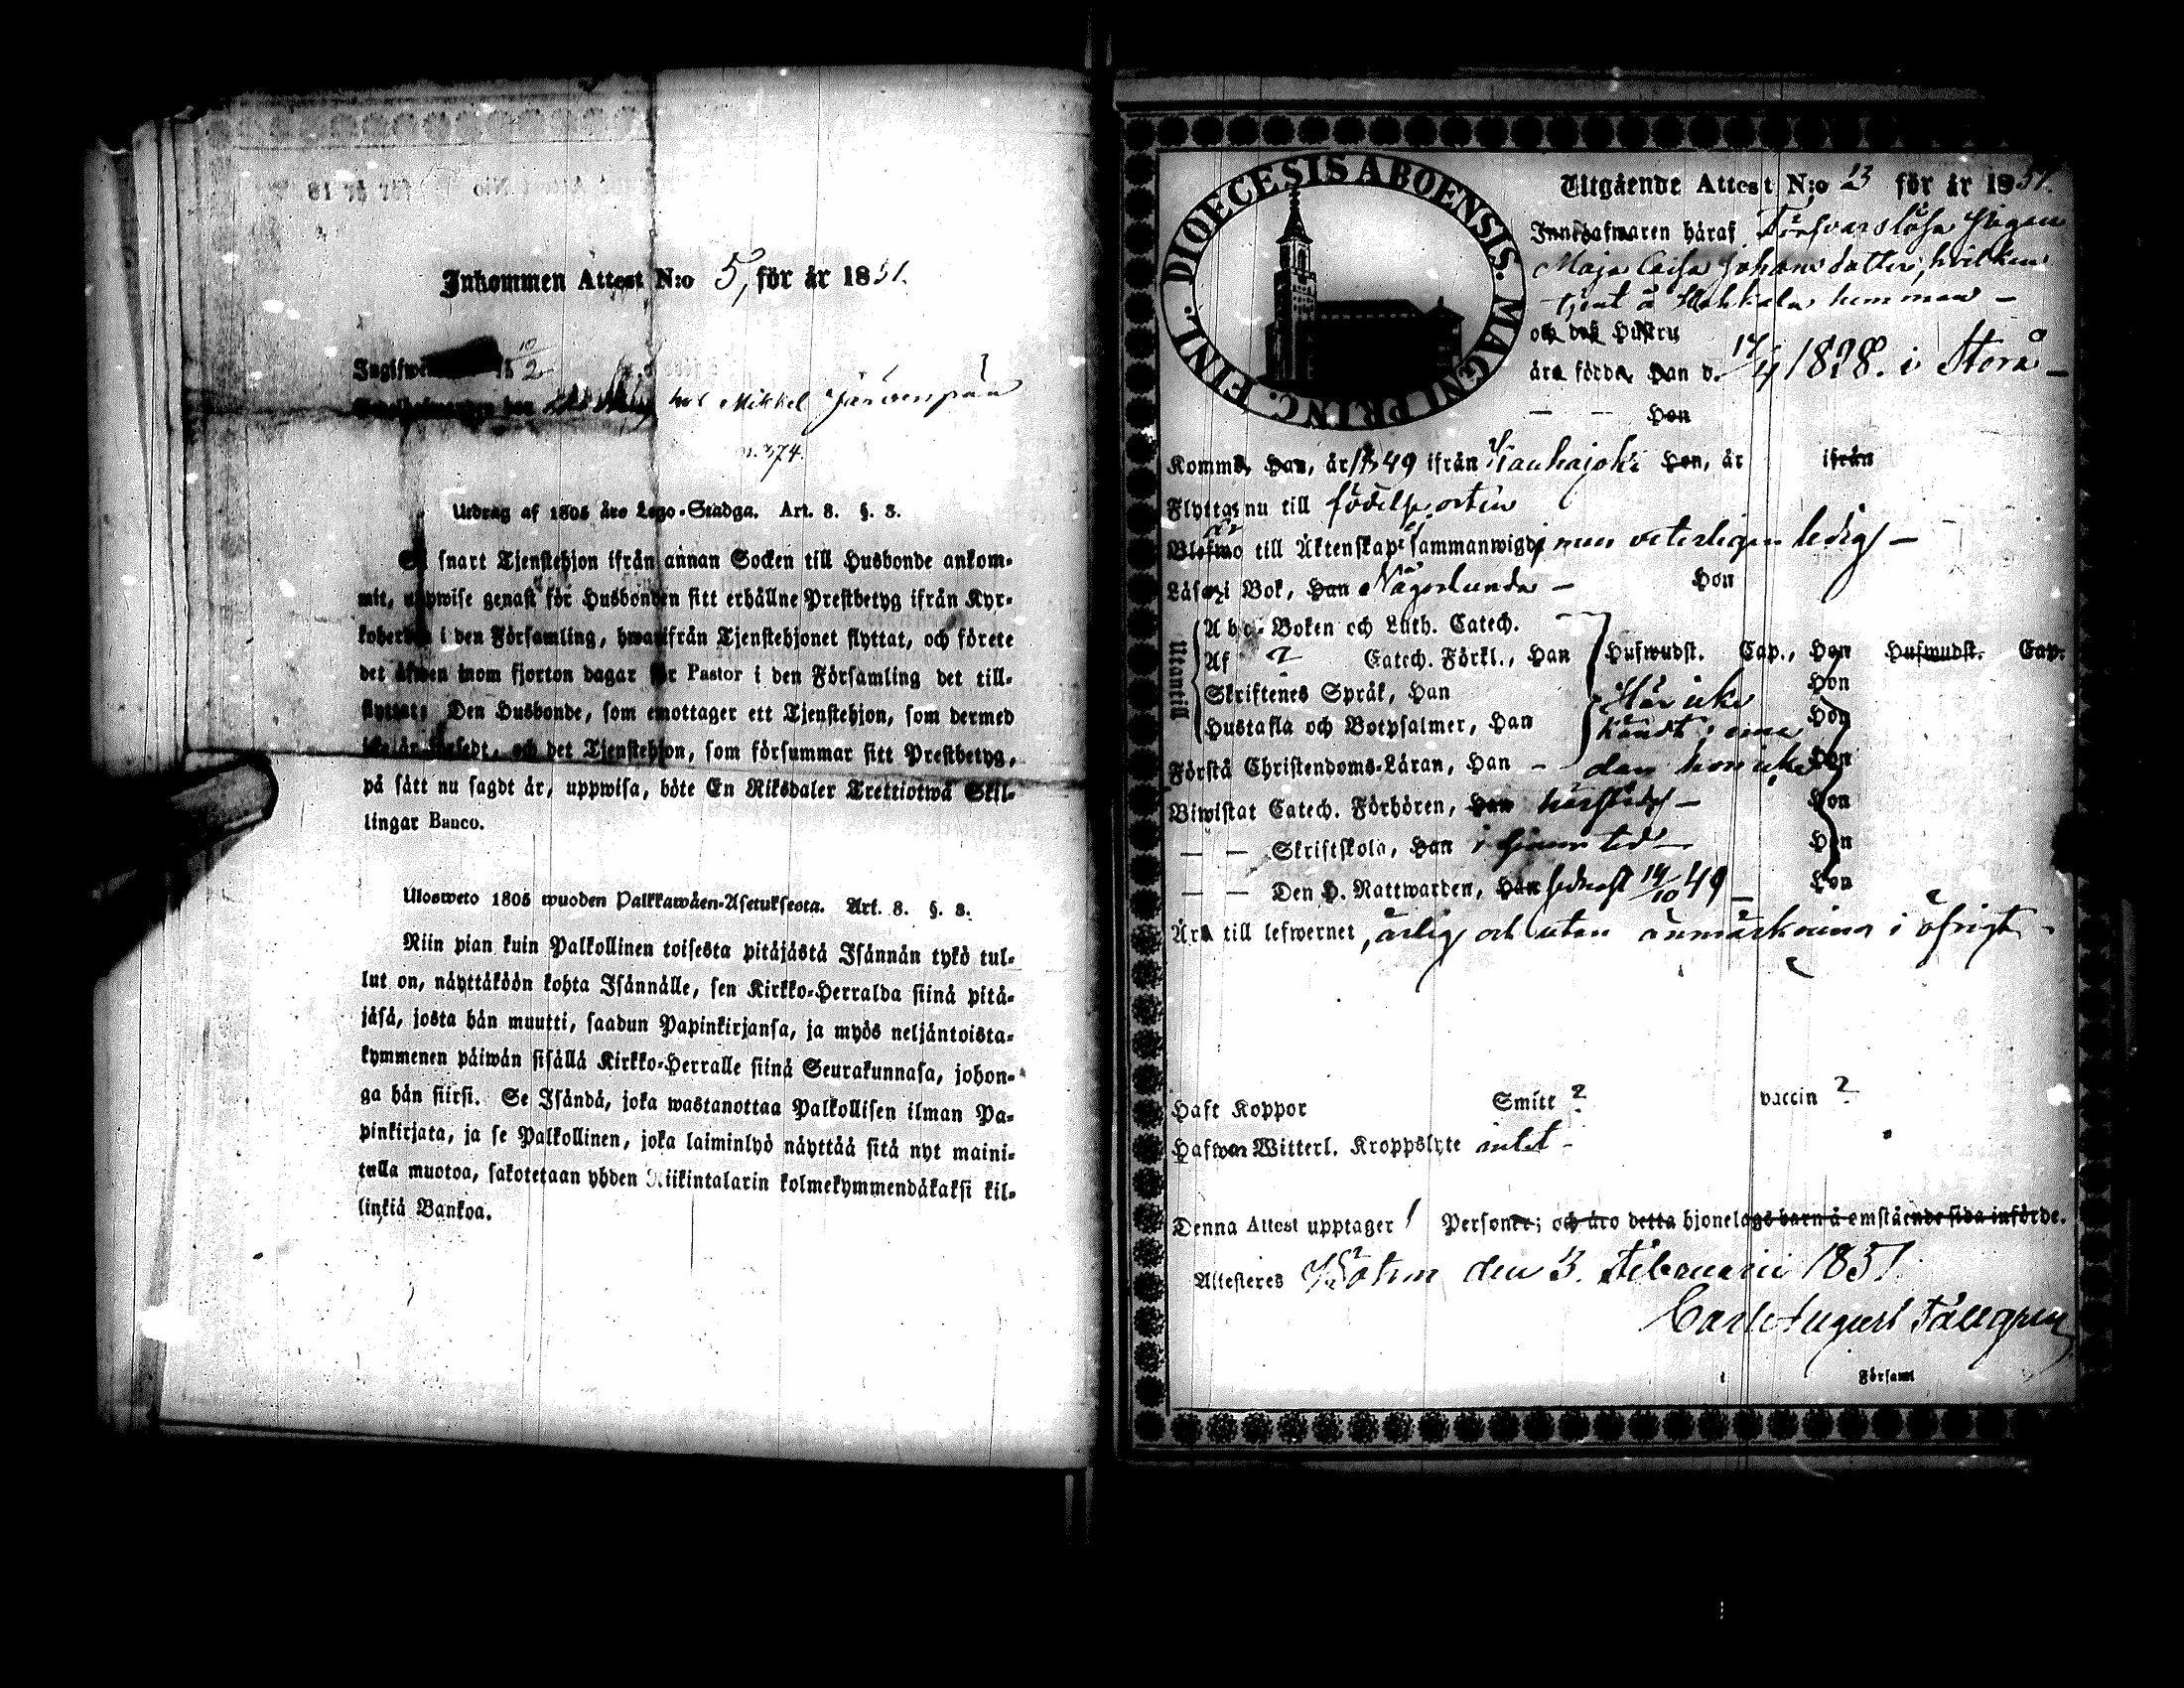 Inkommen Attest N:o 5, för år 1851.
10
2
hos Mikkel Järvenpää
p. 374.
Utdrag af 1805 års Lego-Stadga. Art. 8. §. 3.
Så snart Tjenstehjon ifrån annan Socken till Husbonde ankom-
mit, uppwise genast för Husbonden sitt erhållne Prestbetyg ifrån Kyr-
koherden i den Församling, hwarifrån Tjenstehjonet flyttat, och förete
det äfwen inom fjorton dagar för Pastor i den Församling det till-
flyttat; Den Husbonde, som emottager ett Tjenstehjon, som dermed
icke är försedt, och det Tjenstehjon, som försummar sitt Prestbetyg,
på sätt nu sagdt är, uppwisa, böte En Riksdaler Trettiotwå Skil-
lingar Banco.
Ulosweto 1805 wuoden Palkkawäen-Asetuksesta. Art. 8. §. 3.
Niin pian kuin Palkollinen toisesta pitäjästä Isännän tykö tul-
lut on, näyttäköön kohta Isännälle, sen Kirkko-Herralda siinä pitä-
jäsä, josta hän muutti, saadun Papinkirjansa, ja myös neljäntoista-
kymmenen päiwän sisällä Kirkko-Herralle siinä Seurakunnasa, johon-
ga hän siirsi. Se Isändä, joka wastanottaa Palkollisen ilman Pa-
pinkirjata, ja se Palkollinen, joka laiminlyö näyttää sitä nyt maini-
tulla muotoa, sakotetaan yhden Riikintalarin kolmekymmendäkaksi kil-
linkiä Bankoa.
DIOECESIS ABOENSIS. MAGNI PRINC. FINL.
Utgående Attest N:o 13 för år 1851.
Innehafwaren häraf Försvarslösa Pigan
Maja Caisa Johansdotter, hvilken
tjent å hemman –
och dess Hustru
äro födde, Han d. 17/4 1828. i Storå –
– – Hon
Komme, Han, år 1849 ifrån Kauhajoki Hon, år ifrån
Flyttar nu till födelseorten
är
till Äktenskap sammanwigde mun veterligen ledig –
Läser i Bok, Han Någorlunda – Hon
Utantill
Abc-Boken och Luth. Catech.
Af 2 Catech. Förkl., Han Hufwudst. Cap., Hon Hufwudst. Cap.
Skriftenes Språk, Han Här icke Hon
Hustafla och Botpsalmer, Han känd; Hon
Förstå Christendoms-Läran, Han – dan hon icke Hon
Biwistat Catech. Förhören, Han härstädes – Hon
– – Skriftskola, Han i sinom tid – Hon
– – Den H. Nattwarden, Han sednast 14/10 49 – Hon
Äro till lefwernet, ärlig och utan anmärkning i öfrigt –
Haft Koppor Smitt ? vaccin ?
Hafwa Witterl. Kroppslyte intet –
Denna Attest upptager 1 Personer; och äro detta hjonelags barn å omstående sida införde.
Attesteres den 3. Februarii 1851
Carl August Tallgren
Församl